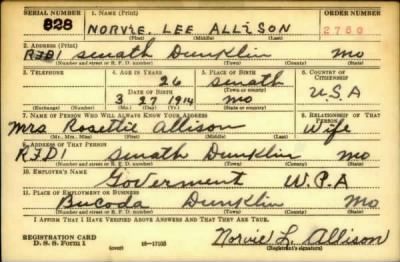 SERIAL NUMBER 1. NAME (Print) ORDER NUMBER
828 NORVIE. LEE ALLISON 2760
(First) (Middle) (Last)
2. ADDRESS (Print)
RFD1 Senath Dunklin Mo
(Number and street or R. F. D. number) (Town) (County) (State)
3. TELEPHONE 4. AGE IN YEARS 5. PLACE OF BIRTH 6. COUNTRY OF CITIZENSHIP
26 Senath
DATE OF BIRTH (Town or county) U.S.A
3 27 1914 Mo
(Exchange) (Number) (Mo.) (Day) (Yr.) (State or country)
7. NAME OF PERSON WHO WILL ALWAYS KNOW YOUR ADDRESS 8. RELATIONSHIP OF THAT PERSON
Mrs Rosettie Allison Wife
(Mr., Mrs., Miss) (First) (Middle) (Last)
9. ADDRESS OF THAT PERSON
RFD1 Senath Dunklin Mo
(Number and street or R. F. D. number) (Town) (County) (State)
10. EMPLOYER'S NAME
Goverment W.P.A
11. PLACE OF EMPLOYMENT OR BUSINESS
Bucoda Dunklin Mo
(Number and street or R. F. D. number) (Town) (County) (State)
I AFFIRM THAT I HAVE VERIFIED ABOVE ANSWERS AND THAT THEY ARE TRUE.
REGISTRATION CARD
D. S. S. Form 1 (over) 16-17105 Norvie L. Allison
(Registrant's signature)